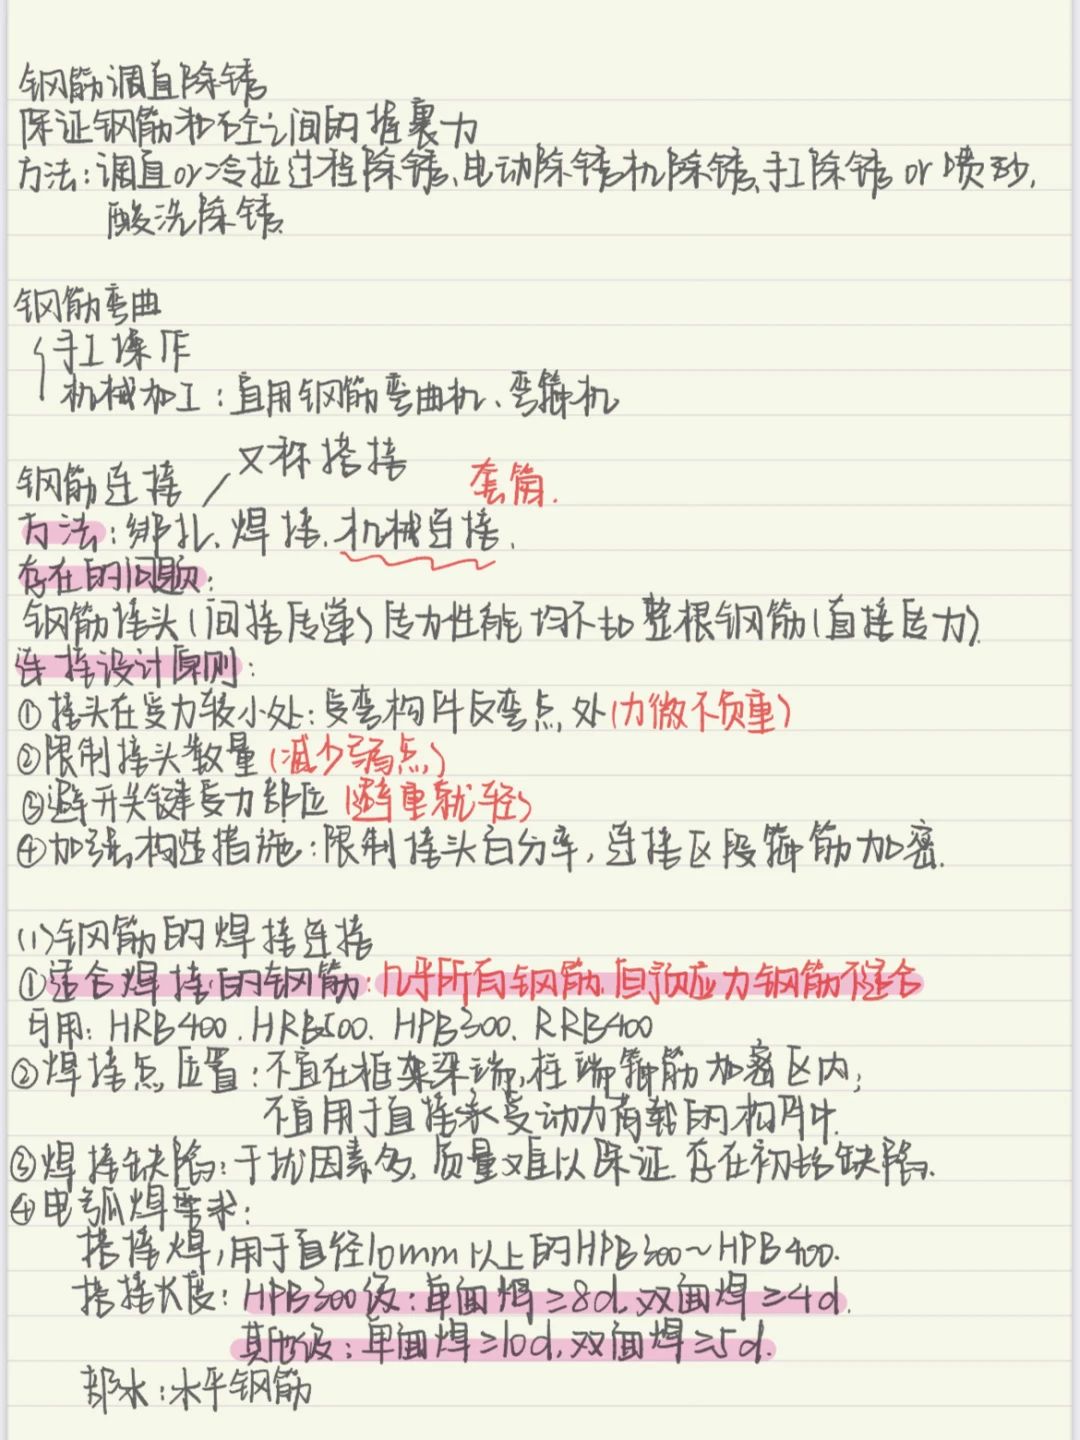 钢筋调直除锈
保证钢筋和砼之间的握裹力
方法:调直or冷拉过程除锈、电动除锈机除锈、手工除锈or喷砂,
酸洗除锈.
钢筋弯曲
手工操作
机械加工:宜用钢筋弯曲机、弯箍机
又称搭接
钢筋连接
套筒.
方法:绑扎.焊接.机械连接.
存在的问题:
钢筋接头(间接传递)传力性能均不如整根钢筋(直接传力).
连接设计原则:
①接头在受力较小处:受弯构件反弯点处(力微不负重)
②限制接头数量(减少弱点)
③避开关键受力部位(避重就轻)
④加强构造措施:限制接头百分率,连接区段箍筋加密.
(1)钢筋的焊接连接
①适合焊接的钢筋:几乎所有钢筋.但预应力钢筋不适合
可用:HRB400.HRB500.HPB300.RRB400
②焊接点位置:不宜在框架梁端,柱端箍筋加密区内;
不宜用于直接承受动力荷载的构件中.
③焊接缺陷:干扰因素多,质量难以保证.存在初始缺陷.
④电弧焊要求:
搭接焊,用于直径10mm以上的HPB300~HPB400.
搭接长度:HPB300级:单面焊≥8d,双面焊≥4d.
其他级:单面焊≥10d,双面焊≥5d.
部水:水平钢筋